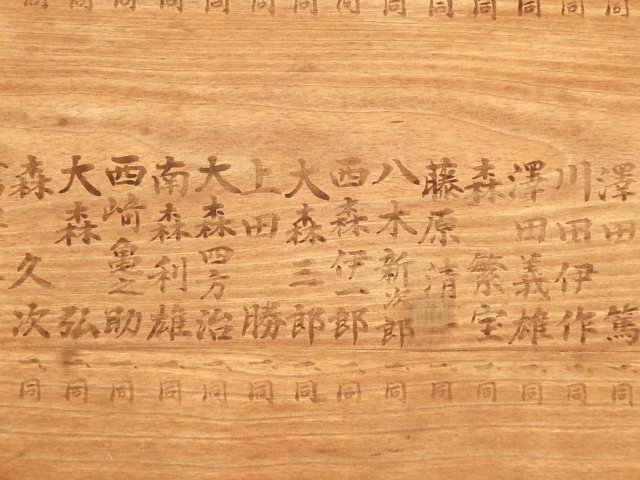 澤田 篤
川田伊作
澤田義雄
森 繁宝
藤原清一
八木新次郎
西森伊一郎
大森三郎
上田 勝
大森四方治
南森利雄
西崎亀之助
大森 弘
森 久次
同 同 同 同 同 同 同 同 同 同 同 同 同 同